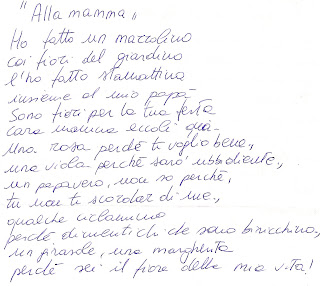 "Alla mamma"
Ho fatto un mazzolino
coi fiori del giardino
l'ho fatto stamattina
insieme al mio papà
Sono fiori per la tua festa
cara mamma eccoli qua.
Una rosa perché ti voglio bene,
una viola perché sarò ubbidiente,
un papavero, non so perché,
tu non ti scordar di me,
qualche ciclamino
perché dimentichi che sono birichino,
un girasole, una margherita
perché sei il fiore della mia vita!